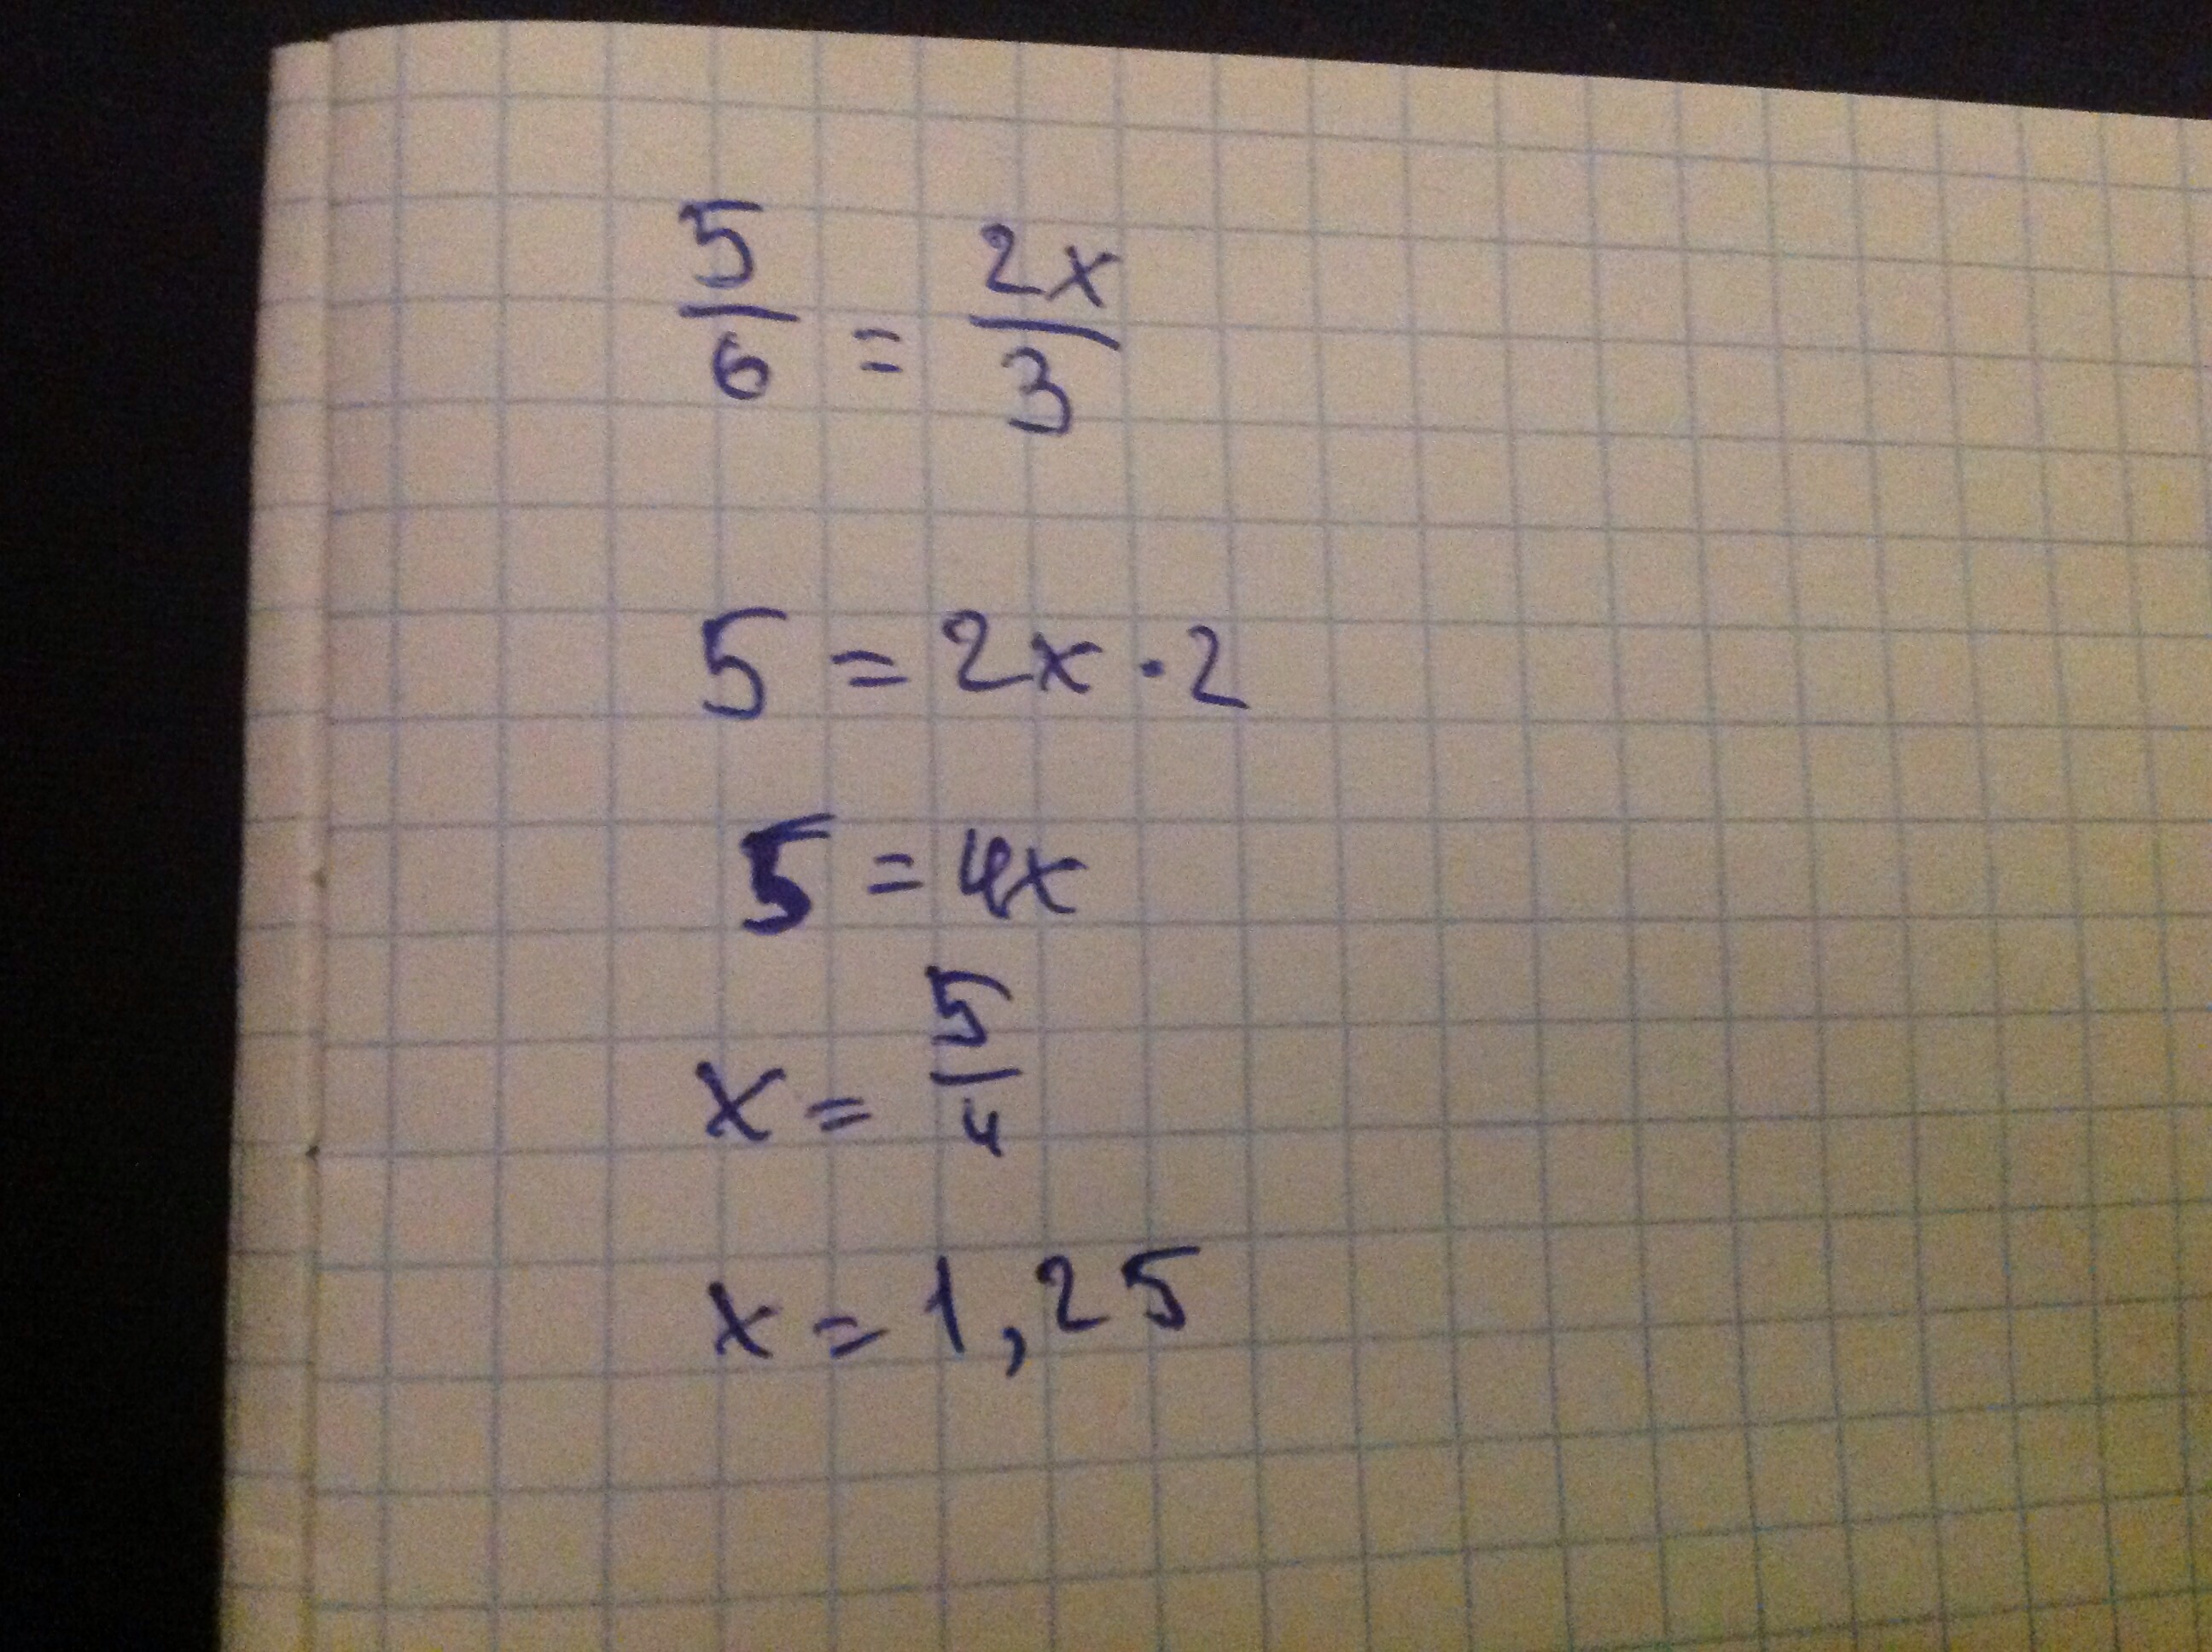 5/6 = 2x/3
5 = 2x · 2
5 = 4x
x = 5/4
x = 1,25